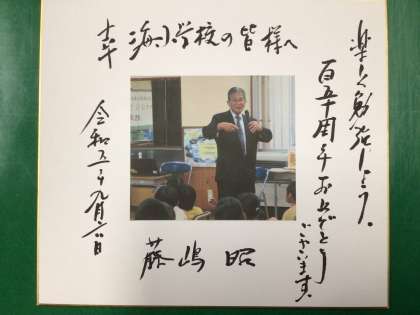 幸海小学校の皆様へ
楽しく勉強しよう。
百五十周年おめでとう
ございます。
令和五年九月六日
藤嶋 昭